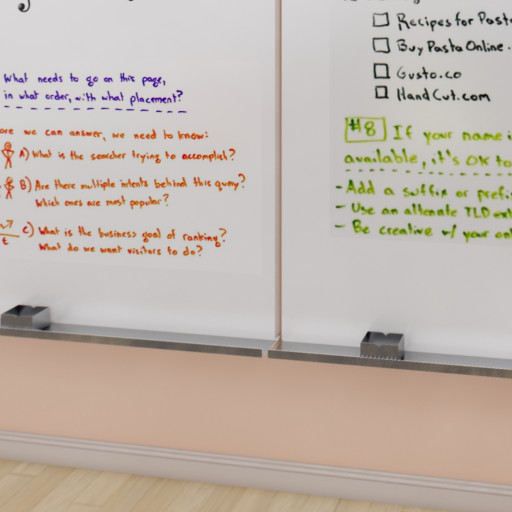 What needs to go on this page,
in what order, with what placement?
ore we can answer, we need to know:
A) What is the searcher trying to accomplish?
B) Are there multiple intents behind this query?
Which ones are most popular?
C) What is the business goal of ranking?
What do we want visitors to do?
t
Recipes for Past
Buy Pasta Online.
Gusto.co
HandCut.com
#8 If your name i
available, it's OK to
- Add a suffix or prefi
- Use an alternate TLD ext
- Be creative w/ your onl